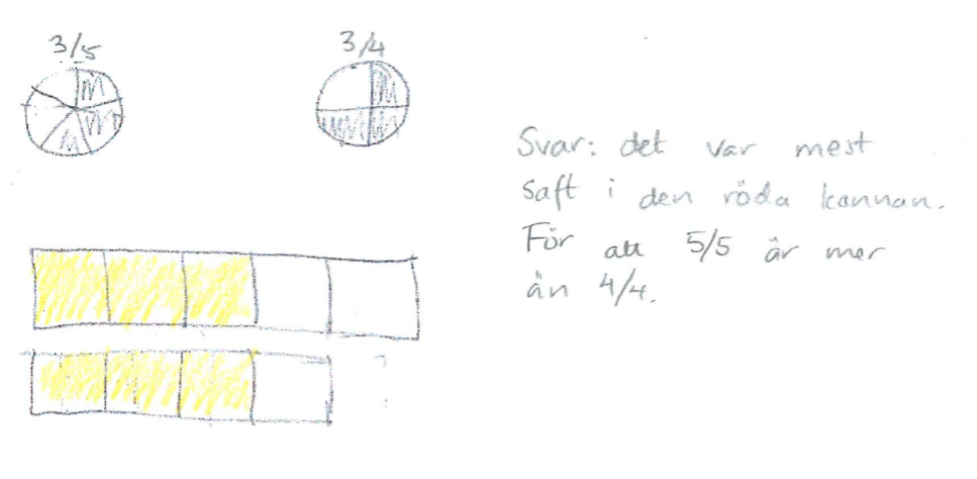 3/5
3/4
Svar: det var mest
saft i den röda kannan.
För att 5/5 är mer
än 4/4.